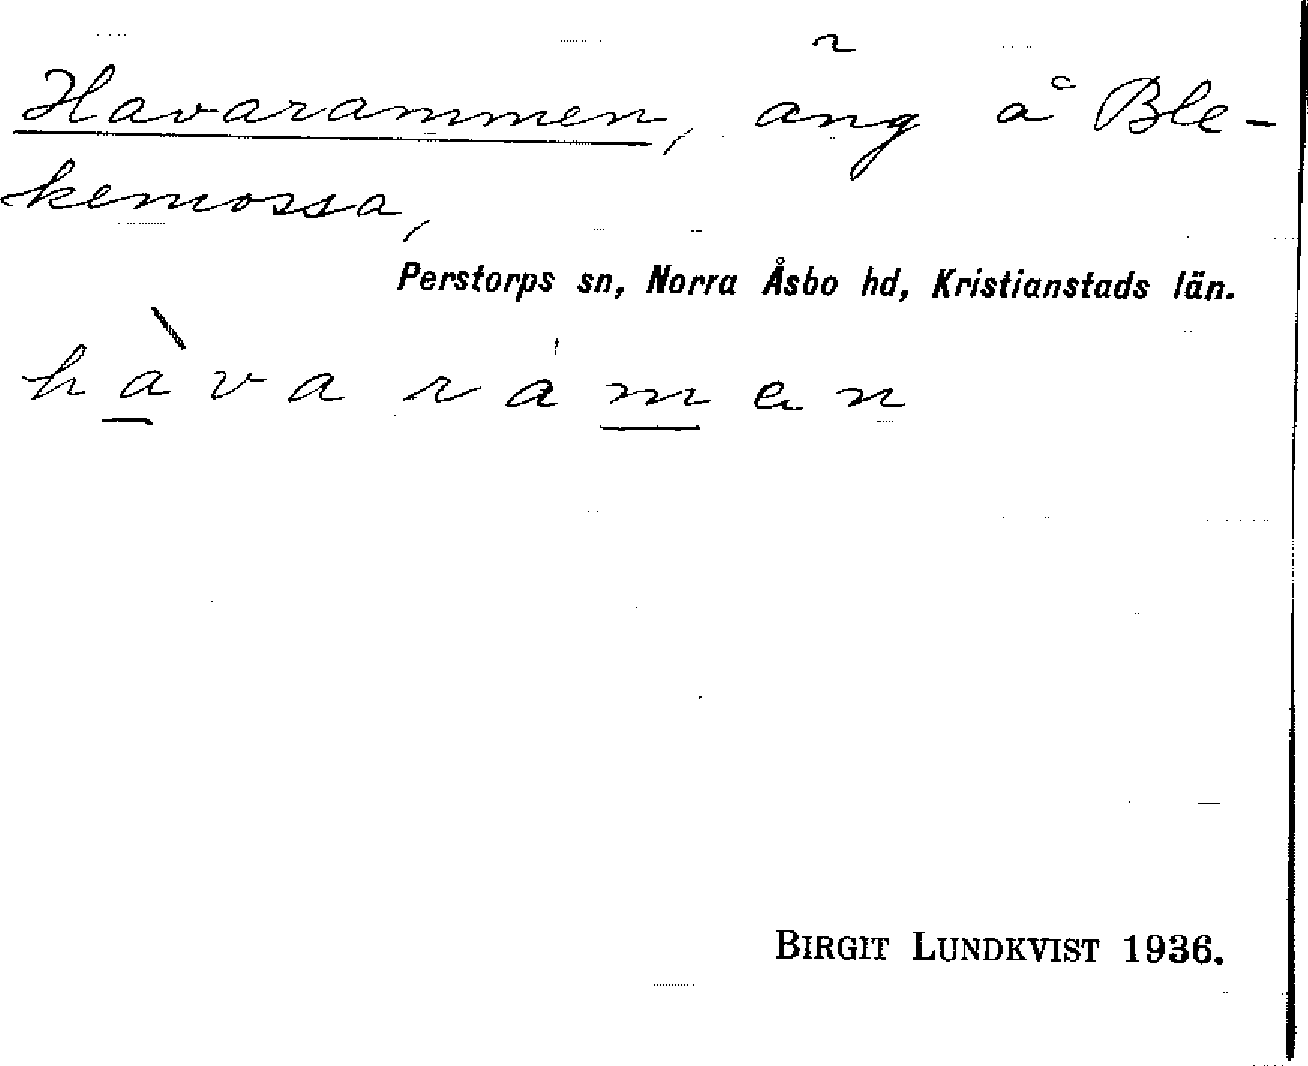 Havarammen, äng å Ble-
kemossa,
Perstorps sn, Norra Åsbo hd, Kristianstads län.
hàvarámen
BIRGIT LUNDKVIST 1936.